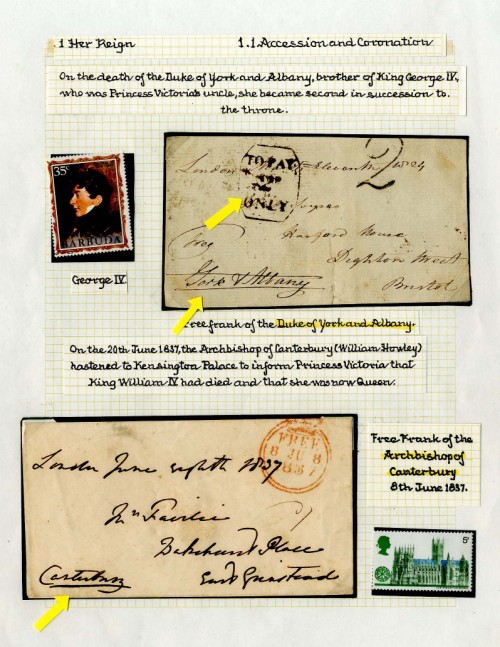 .1 Her Reign 1.1. Accession and Coronation
On the death of the Duke of York and Albany, brother of King George IV,
who was Princess Victoria's uncle, she became second in succession to
the throne.
35¢
BARBUDA
George IV.
TO PAY
ONLY
London Eleventh 1824
2
Harford House
Bristol
Free
York & Albany
Free frank of the Duke of York and Albany.
On the 20th June 1837, the Archbishop of Canterbury (William Howley)
hastened to Kensington Palace to inform Princess Victoria that
King William IV had died and that she was now Queen.
FREE
8 JU 8
1837
London June eighth 1837
East Grinstead
Canterbury
Free Frank of the
Archbishop of
Canterbury
8th June 1837.
5d